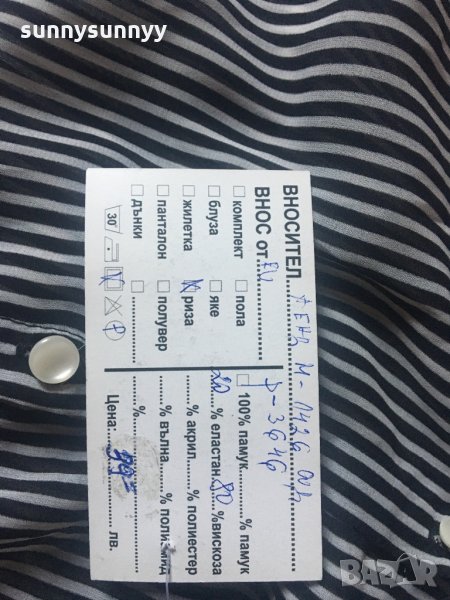 sunnysunnyy
ВНОСИТЕЛ
ВНОС ОТ EU
комплект пола 100% памук % памук
блуза яке 20 % еластан 80 % вискоза
жилетка риза % акрил % полиестер
панталон полувер % вълна % полиамид
дънки % %
30 P Цена: лв.
BAZAR